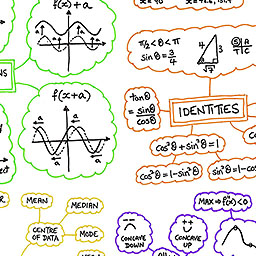 f(x)+a
a
a
a
NS
f(x+a)
a
a
a
a
π/2 < θ < π
sinθ = 3/4
4
3
√7
S A
T C
tanθ
= sinθ
cosθ
IDENTITIES
cos²θ + sin²θ = 1
cos²θ = 1 - sin²θ
sin²θ = 1 - cos
MEAN
MEDIAN
CENTRE
OF DATA
MODE
CONCAVE
DOWN
CONCAVE
UP
MAX ⇒ f"(x) < 0